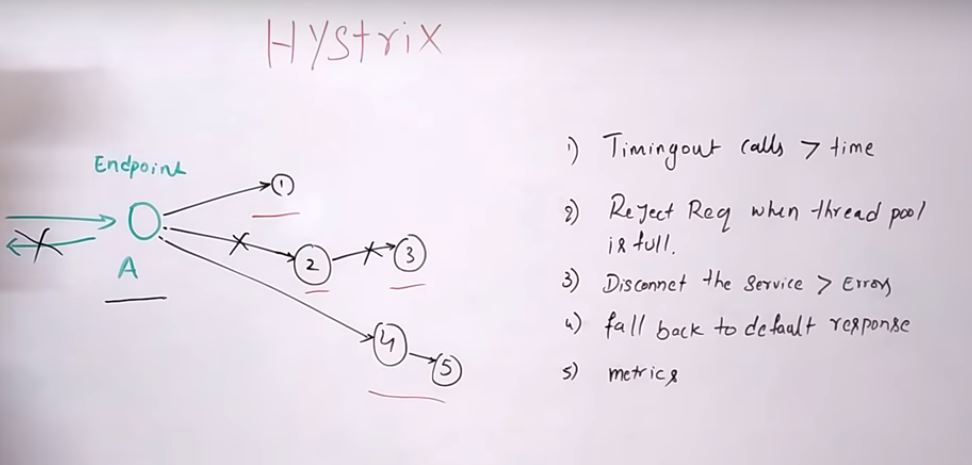 HYStrix
Endpoint
A
1
2
3
4
5
1) Timingout calls > time
2) ReJect Req when thread pool
is full.
3) Disconnet the Service > Errors
4) fall back to default response
5) metrics